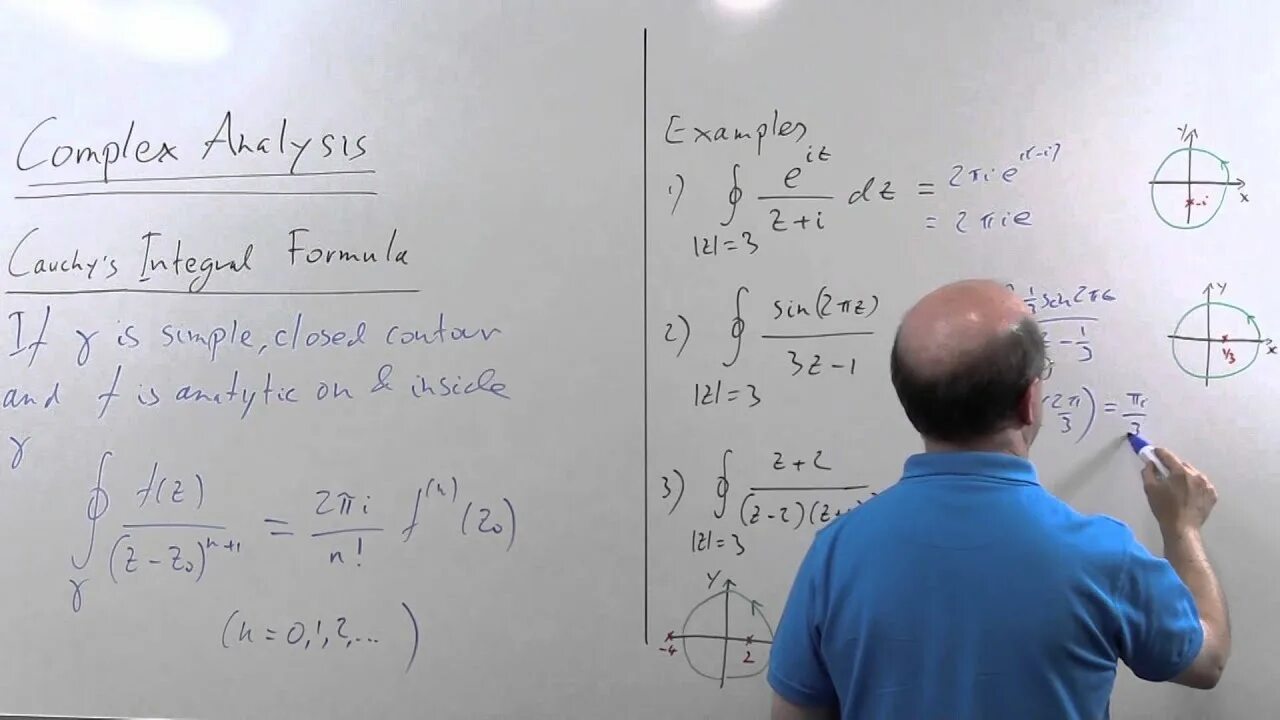 Complex Analysis
Cauchy's Integral Formula
If γ is simple, closed contour
and f is analytic on & inside
γ
∮γ f(z)/(z-z₀)ⁿ⁺¹ = 2πi/n! f⁽ⁿ⁾(z₀)
(n = 0,1,2,...)
Examples
1) ∮ e^(iz)/(z+i) dz = 2πi e^(i(-i))
|z|=3
= 2πie
y
x
-i
2) ∮ sin(2πz)/(3z-1)
|z|=3
1/3 sin 2πz
z - 1/3
2π/3) = πi/3
y
x
1/3
3) ∮ z+2/(z-2)(z+
|z|=3
y
-4
2